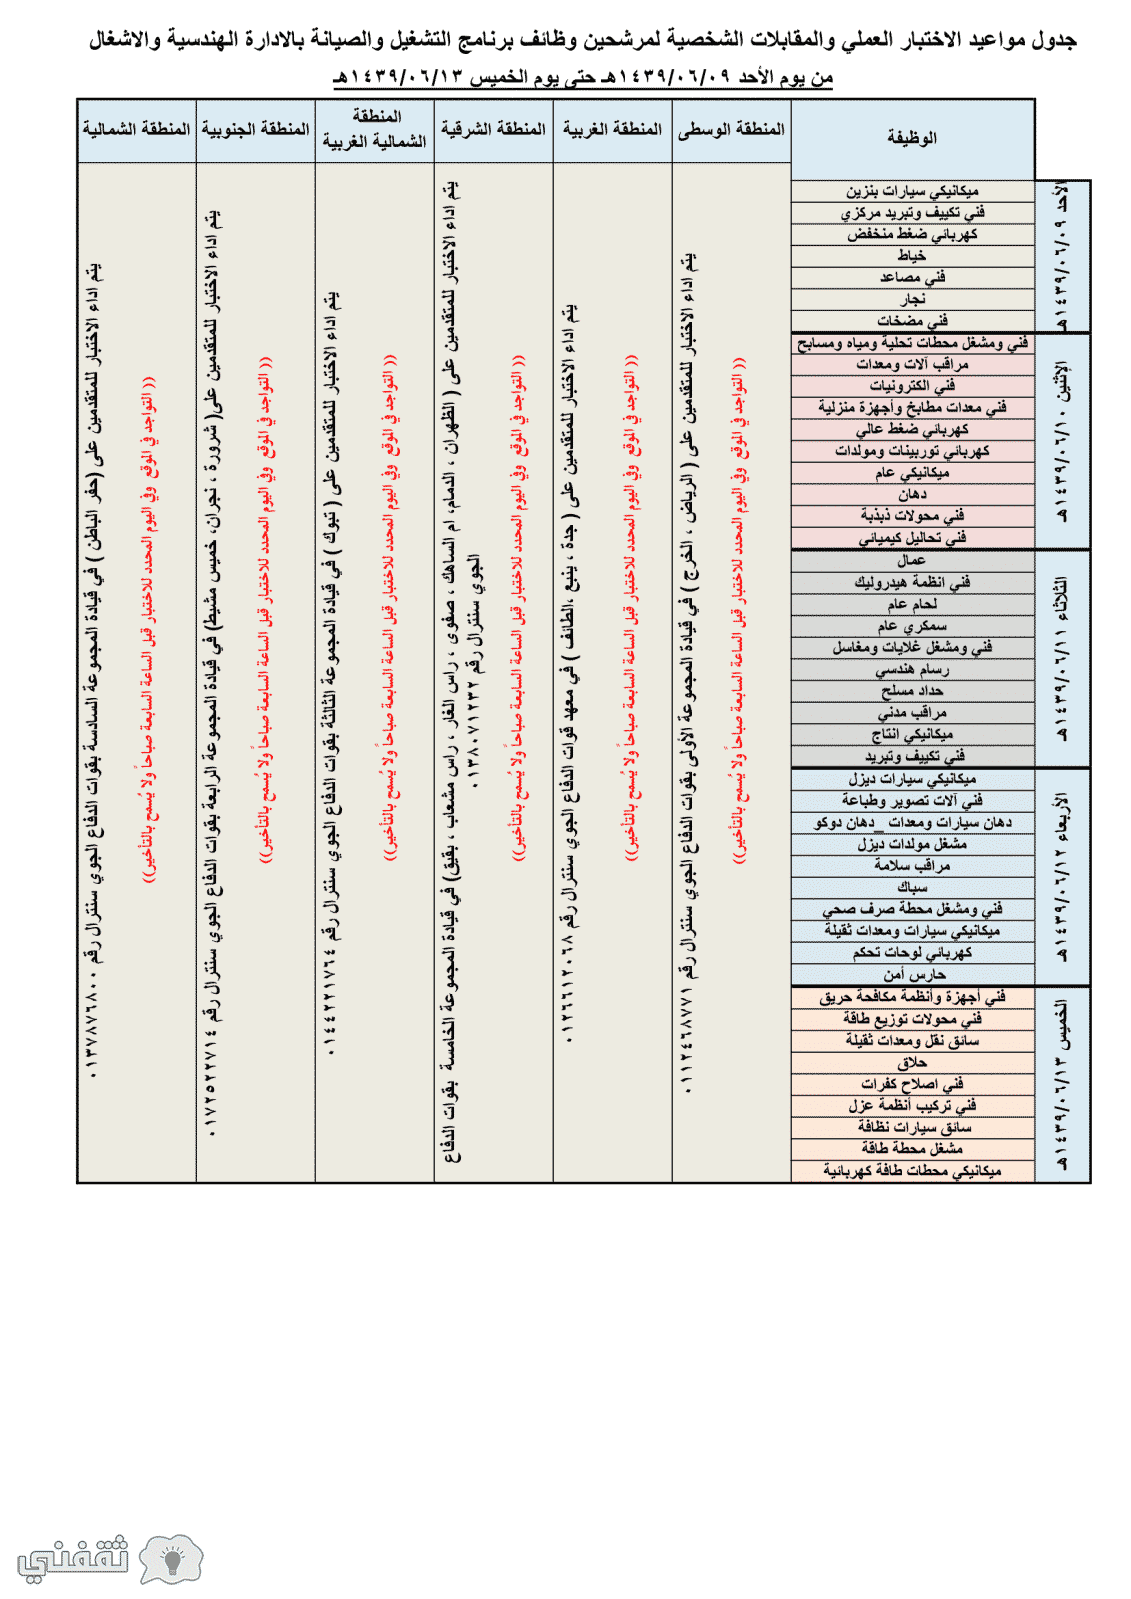 جدول مواعيد الاختبار العملي والمقابلات الشخصية لمرشحين وظائف برنامج التشغيل والصيانة بالادارة الهندسية والاشغال
من يوم الأحد ١٤٣٩/٠٦/٠٩هـ حتى يوم الخميس ١٤٣٩/٠٦/١٣هـ
الوظيفة
المنطقة الوسطى
المنطقة الغربية
المنطقة الشرقية
المنطقة
الشمالية الغربية
المنطقة الجنوبية
المنطقة الشمالية
الأحد ١٤٣٩/٠٦/٠٩هـ
ميكانيكي سيارات بنزين
فني تكييف وتبريد مركزي
كهربائي ضغط منخفض
خياط
فني مصاعد
نجار
فني مضخات
الإثنين ١٤٣٩/٠٦/١٠هـ
فني ومشغل محطات تحلية ومياه ومسابح
مراقب آلات ومعدات
فني الكترونيات
فني معدات مطابخ وأجهزة منزلية
كهربائي ضغط عالي
كهربائي توربينات ومولدات
ميكانيكي عام
دهان
فني محولات ذبذبة
فني تحاليل كيميائي
الثلاثاء ١٤٣٩/٠٦/١١هـ
عمال
فني انظمة هيدروليك
لحام عام
سمكري عام
فني ومشغل غلايات ومغاسل
رسام هندسي
حداد مسلح
مراقب مدني
ميكانيكي انتاج
فني تكييف وتبريد
الأربعاء ١٤٣٩/٠٦/١٢هـ
ميكانيكي سيارات ديزل
فني آلات تصوير وطباعة
دهان سيارات ومعدات _دهان دوكو
مشغل مولدات ديزل
مراقب سلامة
سباك
فني ومشغل محطة صرف صحي
ميكانيكي سيارات ومعدات ثقيلة
كهربائي لوحات تحكم
حارس أمن
الخميس ١٤٣٩/٠٦/١٣هـ
فني أجهزة وأنظمة مكافحة حريق
فني محولات توزيع طاقة
سائق نقل ومعدات ثقيلة
حلاق
فني اصلاح كفرات
فني تركيب أنظمة عزل
سائق سيارات نظافة
مشغل محطة طاقة
ميكانيكي محطات طاقة كهربائية
يتم اداء الاختبار للمتقدمين على ( الرياض ، الخرج ) في قيادة المجموعة الأولى بقوات الدفاع الجوي سنترال رقم ٠١١٢٤٦٨٧٧١
(( التواجد في الموقع وفي اليوم المحدد للاختبار قبل الساعة السابعة صباحاً ولا يُسمح بالتأخير))
يتم اداء الاختبار للمتقدمين على ( جدة ، ينبع ،الطائف ) في معهد قوات الدفاع الجوي سنترال رقم ٠١٢٦٦١٢٠٦٨
(( التواجد في الموقع وفي اليوم المحدد للاختبار قبل الساعة السابعة صباحاً ولا يُسمح بالتأخير))
يتم اداء الاختبار للمتقدمين على ( الظهران ، الدمام، ام الساهك ، صفوى ، راس الغار ، راس مشعاب ، بقيق) في قيادة المجموعة الخامسة بقوات الدفاع
الجوي سنترال رقم ٠١٣٨٠٧١٢٣٢
(( التواجد في الموقع وفي اليوم المحدد للاختبار قبل الساعة السابعة صباحاً ولا يُسمح بالتأخير))
يتم اداء الاختبار للمتقدمين على ( تبوك ) في قيادة المجموعة الثالثة بقوات الدفاع الجوي سنترال رقم ٠١٤٤٢٢١٧٦٤
(( التواجد في الموقع وفي اليوم المحدد للاختبار قبل الساعة السابعة صباحاً ولا يُسمح بالتأخير))
يتم اداء الاختبار للمتقدمين على( شرورة ، نجران، خميس مشيط) في قيادة المجموعة الرابعة بقوات الدفاع الجوي سنترال رقم ٠١٧٢٥٢٢٧١٤
(( التواجد في الموقع وفي اليوم المحدد للاختبار قبل الساعة السابعة صباحاً ولا يُسمح بالتأخير))
يتم اداء الاختبار للمتقدمين على (حفر الباطن ) في قيادة المجموعة السادسة بقوات الدفاع الجوي سنترال رقم ٠١٣٧٨٧٦٨٠٠
(( التواجد في الموقع وفي اليوم المحدد للاختبار قبل الساعة السابعة صباحاً ولا يُسمح بالتأخير))
ثقفني